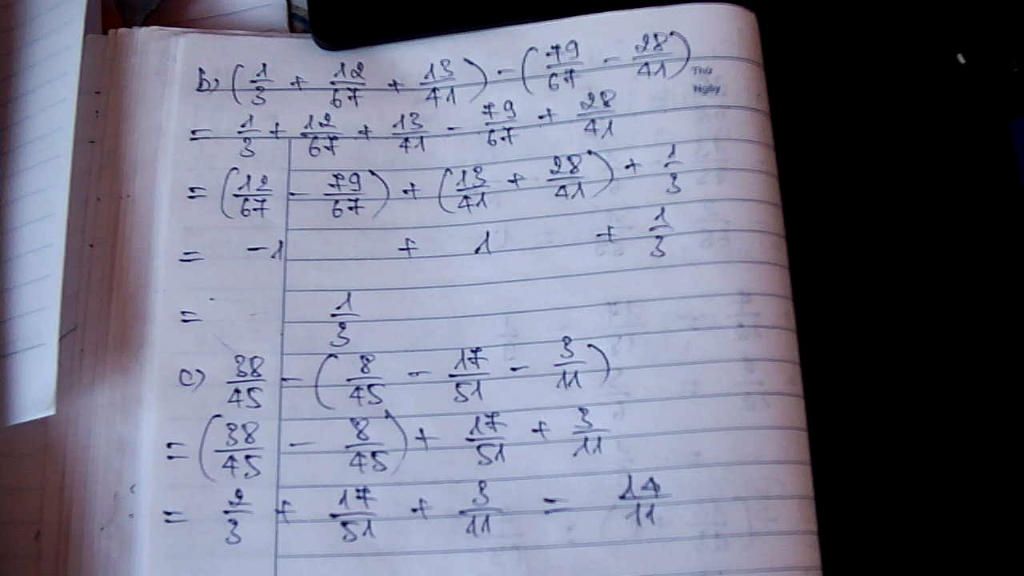 b) (1/3 + 12/67 + 13/41) - (79/67 - 28/41)
Thứ
Ngày
= 1/3 + 12/67 + 13/41 - 79/67 + 28/41
= (12/67 - 79/67) + (13/41 + 28/41) + 1/3
= -1 + 1 + 1/3
= 1/3
c) 38/45 - (8/45 - 17/51 - 3/11)
= (38/45 - 8/45) + 17/51 + 3/11
= 2/3 + 17/51 + 3/11 = 14/11